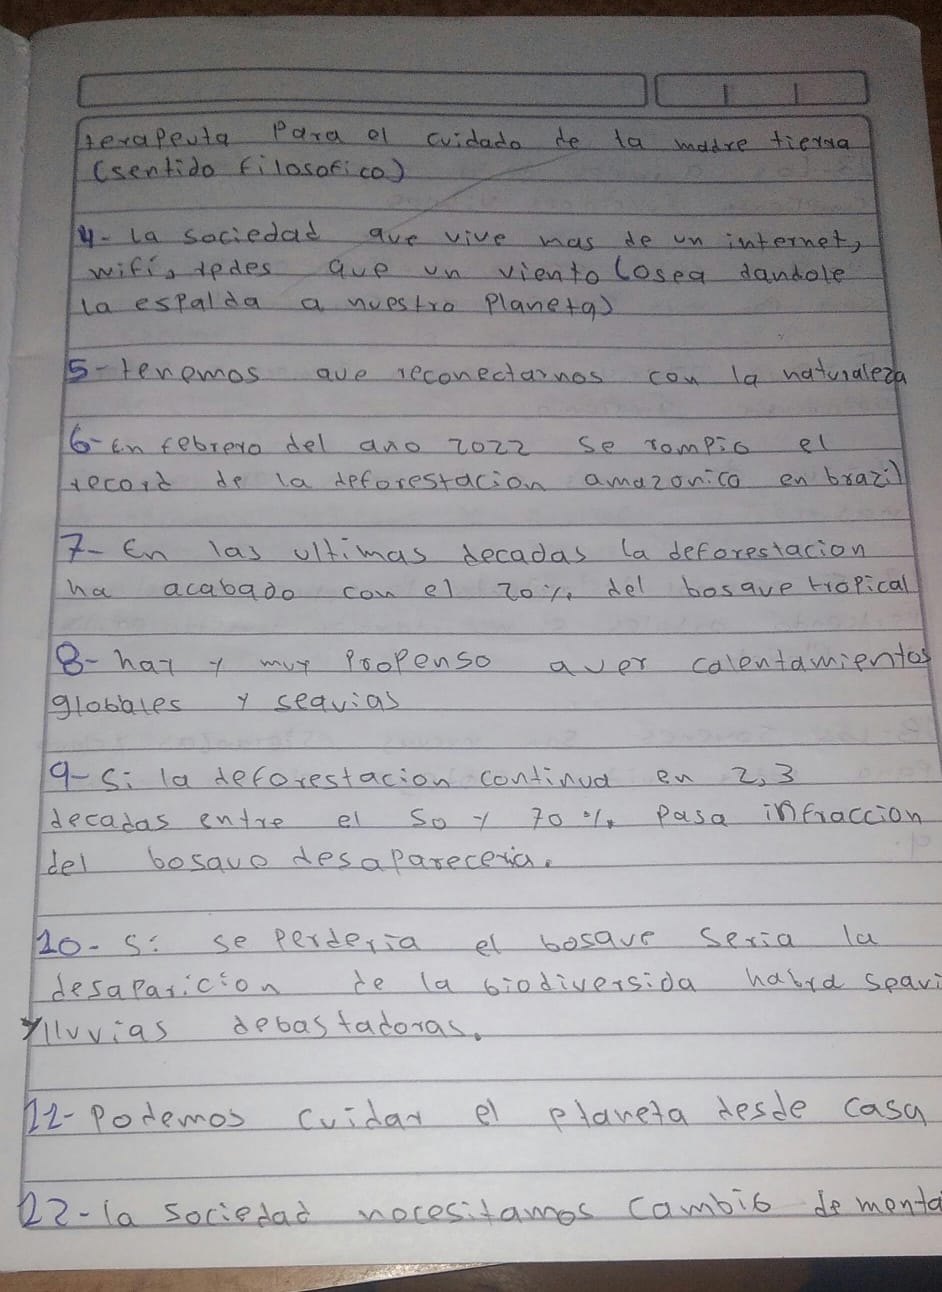 terapeuta Para el cuidado de la madre tierra
(sentido filosofico)
4- la sociedad que vive mas de un internet,
wifi, redes que un viento (osea dandole
la espalda a nuestro Planeta)
5- tenemos que reconectarnos con la naturaleza
6- En febrero del ano 2022 se rompio el
record de la deforestacion amazonica en brazil
7- En las ultimas decadas la deforestacion
ha acabado con el 20% del bosque tropical
8- hay y muy Propenso a ver calentamientos
globales y sequias
9- Si la deforestacion continua en 2,3
decadas entre el 50 y 70% Pasa infraccion
del bosque desapareceria.
10- Si se perderia el bosque seria la
desaparicion de la biodiversida habra sequi
y lluvias debastadoras.
11- Podemos cuidar el planeta desde casa
12- la sociedad necesitamos cambio de menta